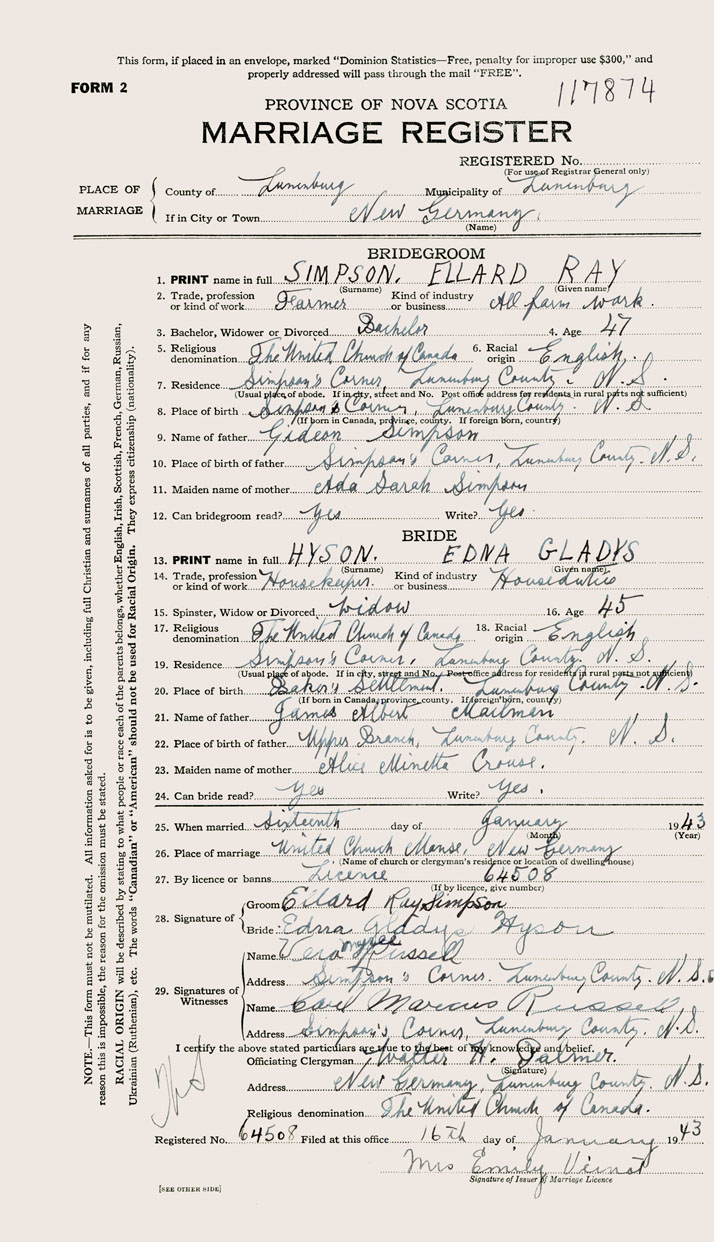 This form, if placed in an envelope, marked "Dominion Statistics—Free, penalty for improper use $300," and
properly addressed will pass through the mail "FREE".
FORM 2
117874
PROVINCE OF NOVA SCOTIA
MARRIAGE REGISTER
REGISTERED No.
(For use of Registrar General only)
PLACE OF MARRIAGE
County of Lunenburg Municipality of Lunenburg
If in City or Town New Germany.
(Name)
BRIDEGROOM
1. PRINT name in full SIMPSON. ELLARD RAY
(Surname) (Given name)
2. Trade, profession or kind of work Farmer Kind of industry or business All farm work.
3. Bachelor, Widower or Divorced Bachelor 4. Age 47
5. Religious denomination The United Church of Canada 6. Racial origin English.
7. Residence Simpson's Corner, Lunenburg County. N.S.
(Usual place of abode. If in city, street and No. Post office address for residents in rural parts not sufficient)
8. Place of birth Simpson's Corner, Lunenburg County. N.S.
(If born in Canada, province, county. If foreign born, country)
9. Name of father Gideon Simpson
10. Place of birth of father Simpson's Corner, Lunenburg County. N.S.
11. Maiden name of mother Ada Sarah Simpson
12. Can bridegroom read? Yes Write? Yes.
BRIDE
13. PRINT name in full HYSON. EDNA GLADYS
(Surname) (Given name)
14. Trade, profession or kind of work Housekeeper. Kind of industry or business Houseduties
15. Spinster, Widow or Divorced Widow 16. Age 45
17. Religious denomination The United Church of Canada 18. Racial origin English
19. Residence Simpson's Corner, Lunenburg County. N.S.
(Usual place of abode. If in city, street and No. Post office address for residents in rural parts not sufficient)
20. Place of birth Baker's Settlement. Lunenburg County. N.S.
(If born in Canada, province, county. If foreign born, country)
21. Name of father James Albert Mailman
22. Place of birth of father Upper Branch, Lunenburg County. N.S.
23. Maiden name of mother Alice Minetta Crouse.
24. Can bride read? Yes Write? Yes.
25. When married Sixteenth day of January 1943
(Month) (Year)
26. Place of marriage United Church Manse, New Germany
(Name of church or clergyman's residence or location of dwelling house)
27. By licence or banns Licence 64508
(If by licence, give number)
28. Signature of
Groom Ellard Ray Simpson
Bride Edna Gladys Hyson
29. Signatures of Witnesses
Name Vera Russell
Address Simpson's Corner. Lunenburg County. N.S.
Name Carl Marcus Russell
Address Simpson's Corner, Lunenburg County. N.S.
I certify the above stated particulars are true to the best of my knowledge and belief.
Officiating Clergyman Walter W. Palmer.
(Signature)
Address New Germany, Lunenburg County. N.S.
Religious denomination The United Church of Canada.
Registered No. 64508 Filed at this office 16th day of January 1943
Mrs Emily Veinot
Signature of Issuer of Marriage Licence
[SEE OTHER SIDE]
NOTE.—This form must not be mutilated. All information asked for is to be given, including full Christian and surnames of all parties, and if for any
reason this is impossible, the reason for the omission must be stated.
RACIAL ORIGIN will be described by stating to what people or race each of the parents belongs, whether English, Irish, Scottish, French, German, Russian,
Ukrainian (Ruthenian), etc. The words "Canadian" or "American" should not be used for Racial Origin. They express citizenship (nationality).